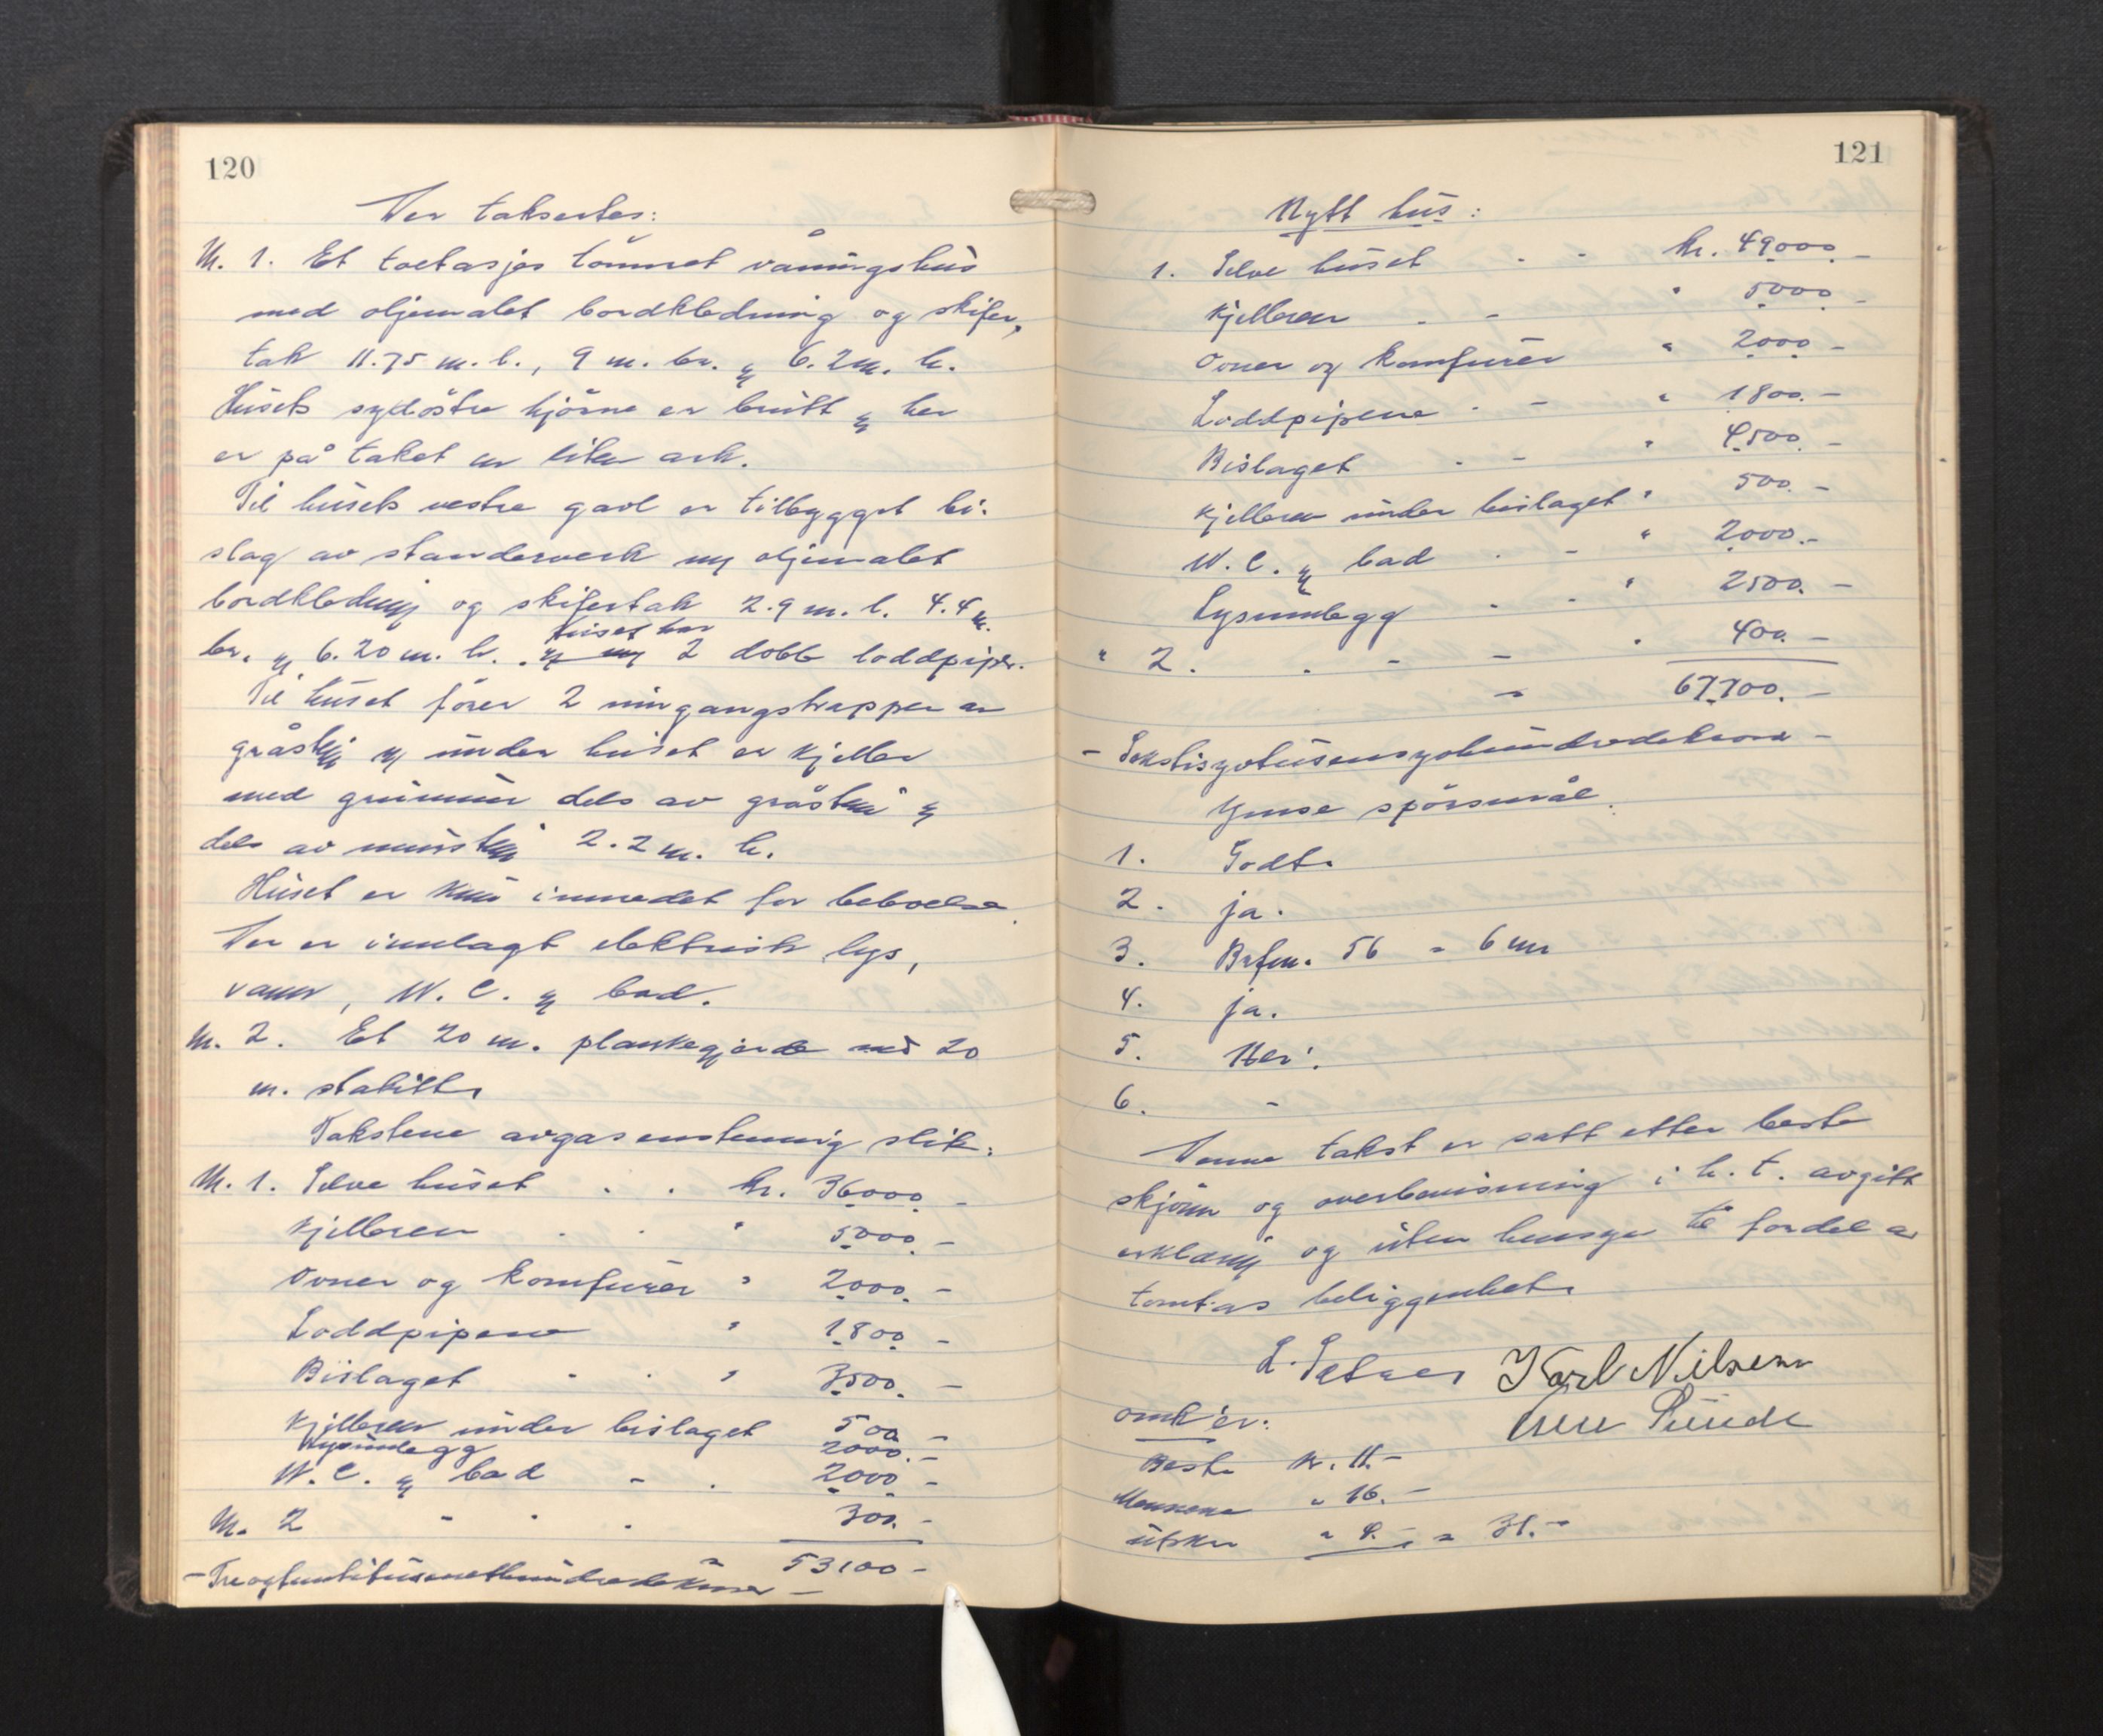 120
Der taksertes:
M. 1. Et toetasjes tömret våningshus
med oljemalet bordkledning og skifer,
tak 11.75 m. l., 9 m. br. og 6.2 m. h.
Husets sydöstre hjörne er brutt og her
er på taket en liten ark.
Til husets vestre gavl er tilbygget bi-
slag av standerverk m oljemalet
bordkledning og skifertak 2.9 m. l. 4.4 m.
huset har
br. og 6.20 m. h. 2 dobb loddpiper.
Til huset förer 2 inngangstrapper av
gråstein og under huset er kjeller
med grunnmur dels av gråstein og
dels av murstein 2.2 m. h.
Huset er kun innredet for beboelse.
Der er innlagt elektrisk lys,
vann, W. C. og bad.
M. 2. Et 20 m. plankegjerde med 20
m. stakitt.
Takstene avgas enstemmig slik:
M. 1. Selve huset . . kr. 36000 -
Kjelleren . . " 5000. -
Ovner og komfurer " 2000. -
Loddpipene " 1800 -
Bislaget . . " 3500. -
Kjelleren under bislaget 500 -
Lysinnlegg 2000. -
W. C. og bad - . 2000 -
M. 2 - . . 300. -
53100 -
- Treogfemtitusenetthundredekroner -
121
Nytt hus:
1. Selve huset - - kr. 49000. -
Kjelleren . - " 5000 -
Ovner og komfurer " 2000 -
Loddpipene . - " 1800. -
Bislaget . - " 4500. -
Kjelleren under bislaget " 500. -
W. C. og bad . - " 2000. -
Lysinnlegg . - " 2500. -
" 2. . - - . 400. -
67700. -
- Sekstisyvtusensyvhundredekroner -
Ymse spörsmål.
1. Godt.
2. ja.
3. Brfm. 56 = 6 mm
4. ja.
5. Nei.
6. -
Denne takst er satt etter beste
skjönn og overbevisning i h. t. avgitt
erklæring og uten hensyn til fordel av
tomtas beliggenhet.
Karl Nilsen
omk'er:
Best. kr. 11. -
Mennene " 16. -
utskr " 4. - = 31. -